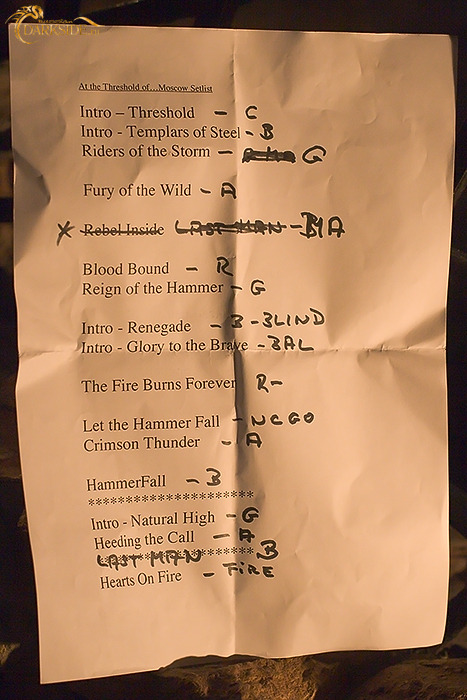 DARKSIDE
At the Threshold of...Moscow Setlist
Intro – Threshold – C
Intro - Templars of Steel - B
Riders of the Storm – G
Fury of the Wild – A
X Rebel Inside LAST MAN - BMA
Blood Bound - R
Reign of the Hammer - G
Intro - Renegade - B - BLIND
Intro - Glory to the Brave - BAL
The Fire Burns Forever R-
Let the Hammer Fall - NCGO
Crimson Thunder - A
HammerFall - B
**********************
Intro - Natural High - G
Heeding the Call - A
LAST MAN ********** B
Hearts On Fire - FIRE